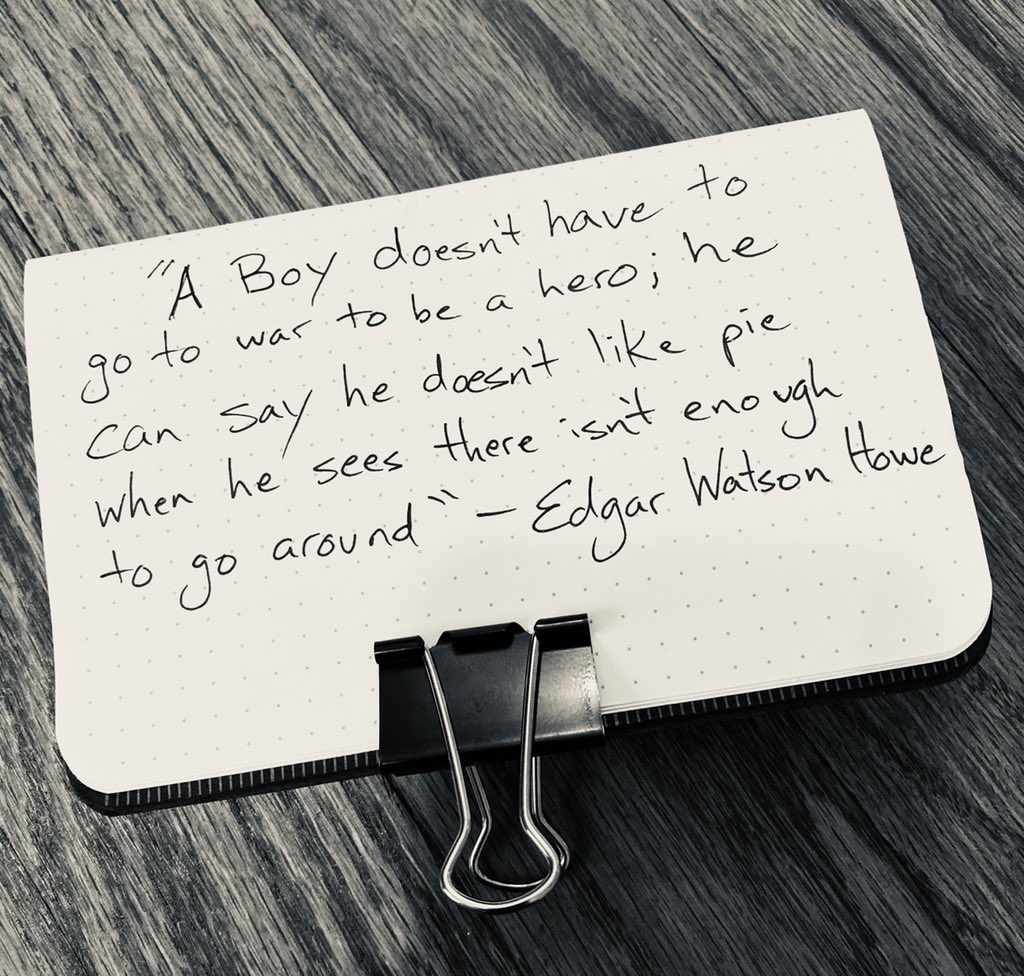 "A Boy doesn't have to
go to war to be a hero; he
can say he doesn't like pie
when he sees there isn't enough
to go around" - Edgar Watson Howe